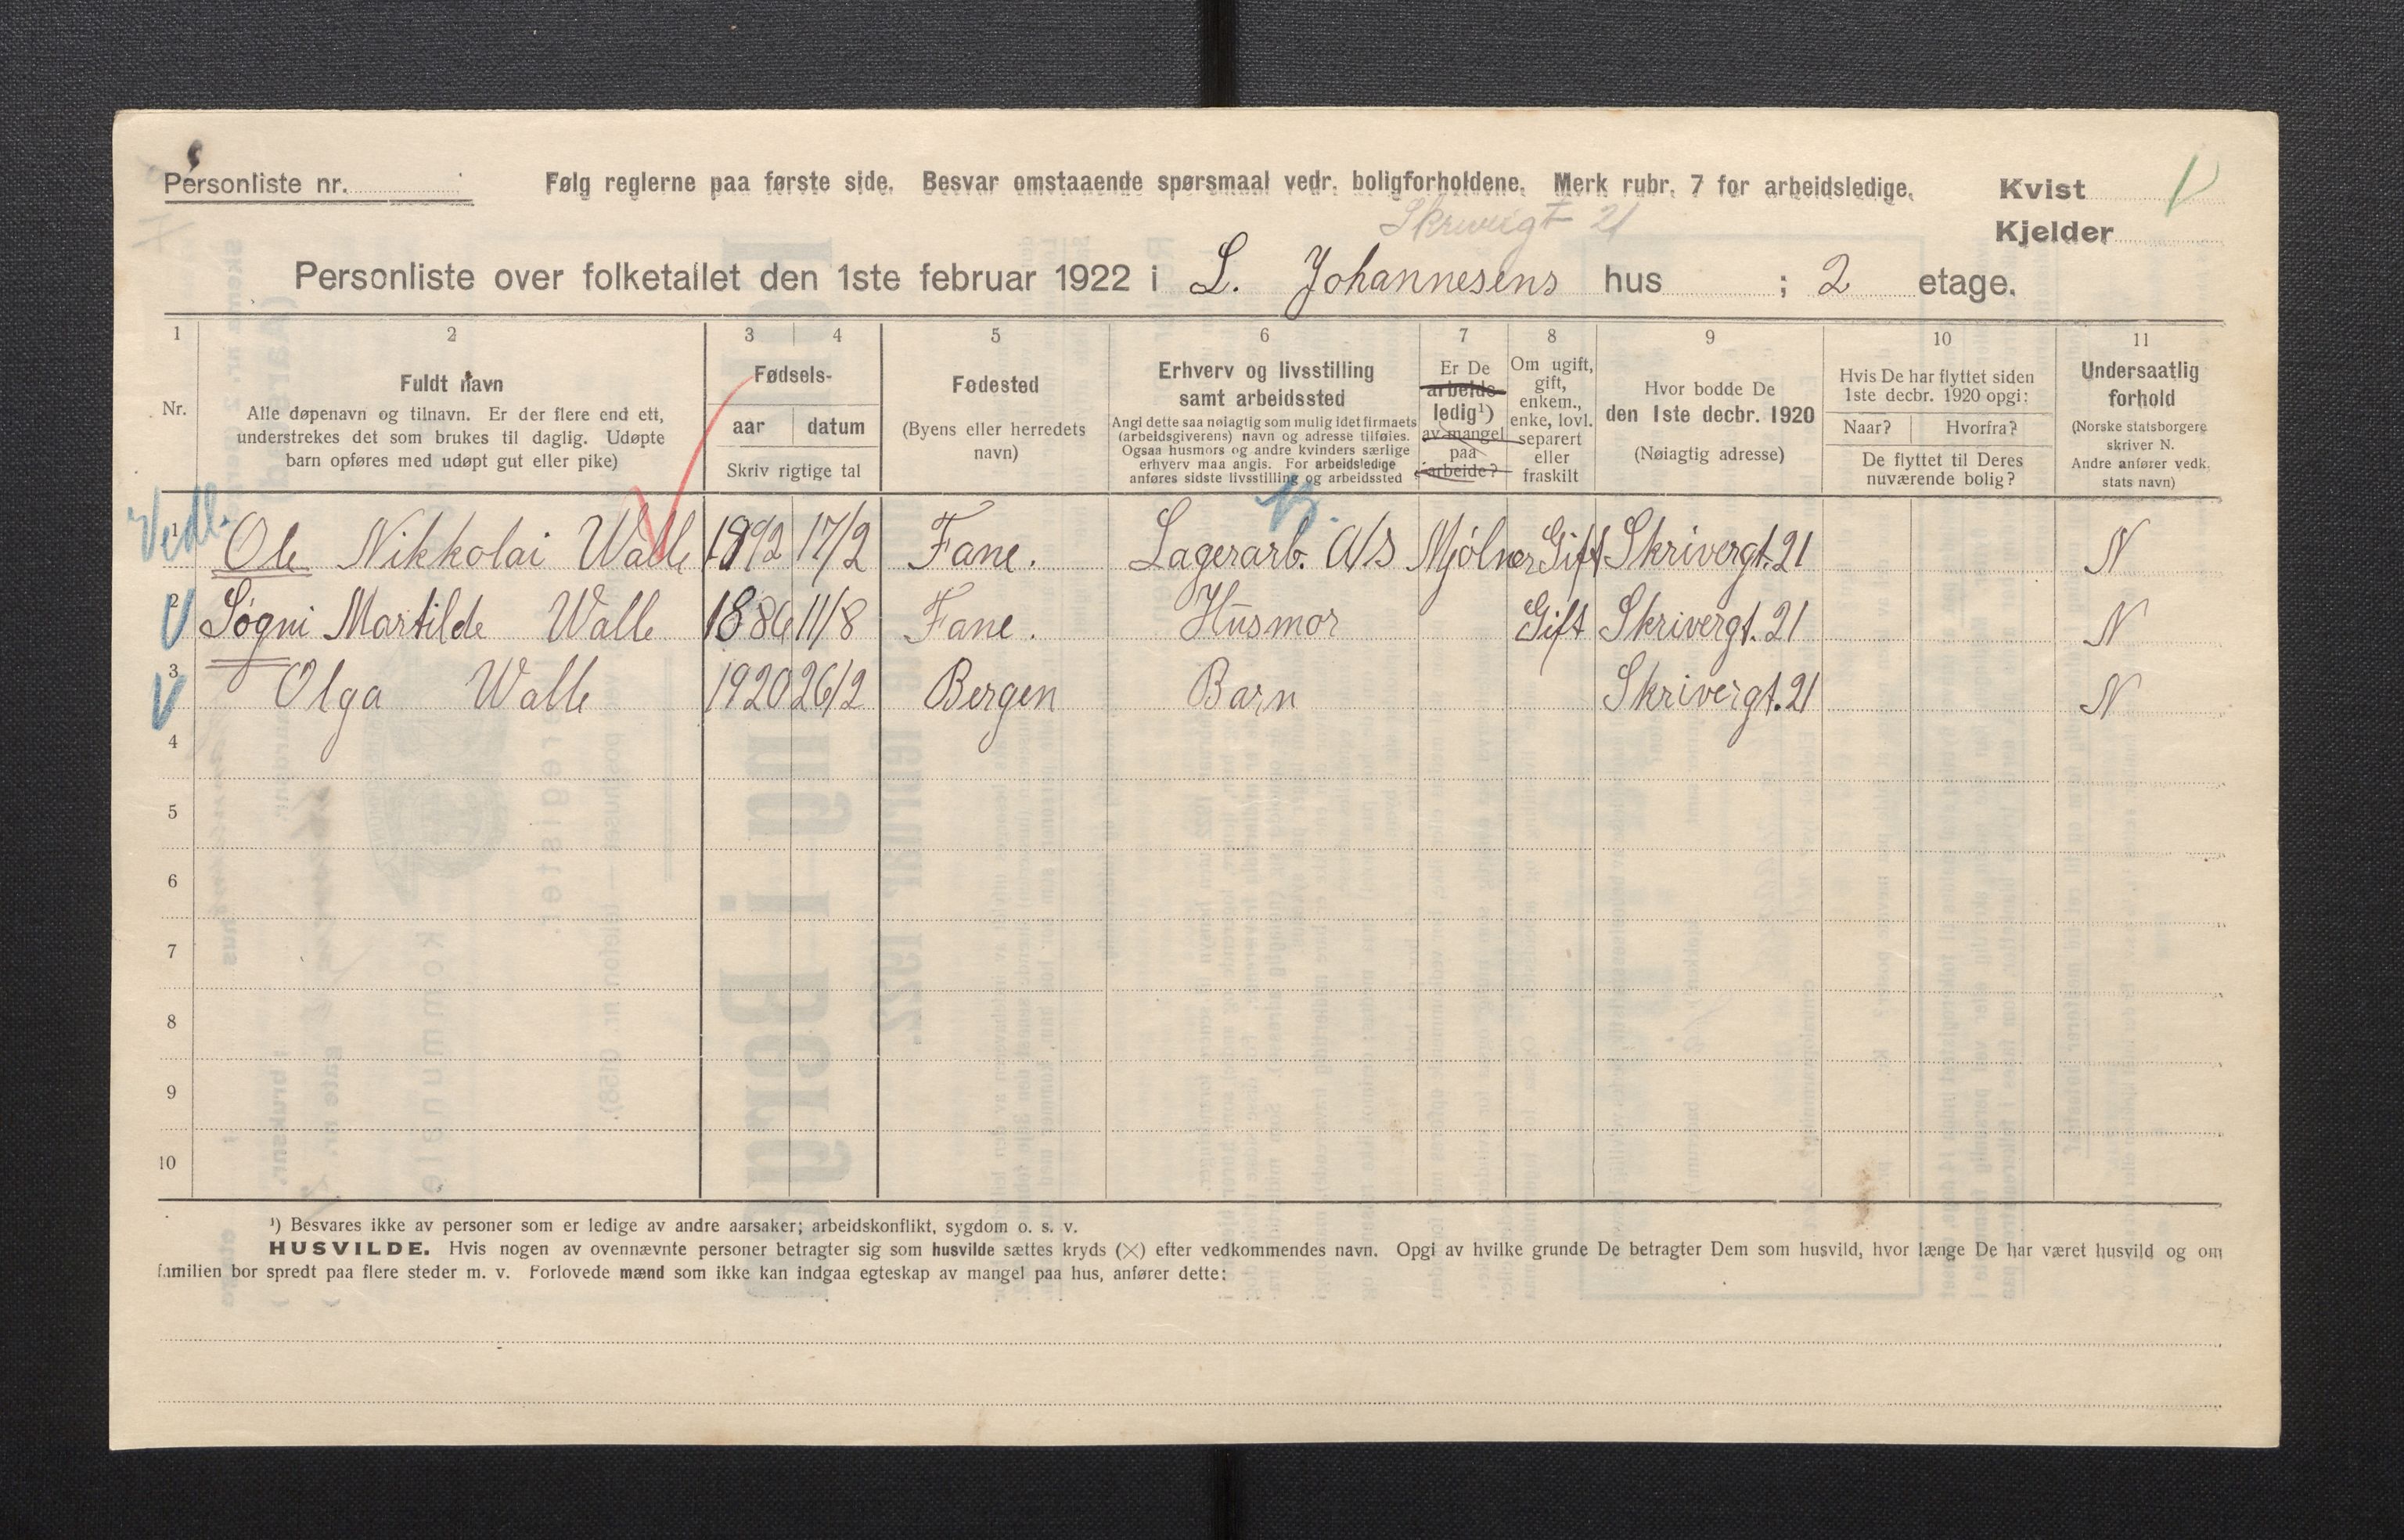 Personliste nr.
Følg reglerne paa første side. Besvar omstaaende spørsmaal vedr. boligforholdene. Merk rubr. 7 for arbeidsledige.
Kvist
Skrivergt 21
Kjelder
Personliste over folketallet den 1ste februar 1922 i L. Johannesens hus ; 2 etage.
1 2 3 4 5 6 7 8 9 10 11
Nr.
Fuldt navn
Alle døpenavn og tilnavn. Er der flere end ett,
understrekes det som brukes til daglig. Udøpte
barn opføres med udøpt gut eller pike)
Fødsels-
aar datum
Skriv rigtige tal
Fødested
(Byens eller herredets
navn)
Erhverv og livsstilling
samt arbeidssted
Angi dette saa nøiaglig som mulig idet firmaets
(arbeidsgiverens) navn og adresse tilføies.
Ogsaa husmors og andre kvinders særlige
erhverv maa angis. For arbeidsledige
anføres sidste livsstilling og arbeidssted
Er De
arbeids-
ledig¹)
av mangel
paa
arbeide?
Om ugift,
gift,
enkem.,
enke, lovl.
separert
eller
fraskilt
Hvor bodde De
den 1ste decbr. 1920
(Nøiagtig adresse)
Hvis De har flyttet siden
1ste decbr. 1920 opgi:
Naar? Hvorfra?
De flyttet til Deres
nuværende bolig?
Undersaatlig
forhold
(Norske statsborgere
skriver N.
Andre anfører vedk.
stats navn)
Vedl.
1 Ole Nikkolai Walle 1892 17/2 Fane. Lagerarb. A/S Mjølner Gift Skrivergt. 21 N
2 Søgni Martilde Walle 1886 11/8 Fane. Husmor Gift Skrivergt. 21 N
3 Olga Walle 1920 26/2 Bergen Barn Skrivergt. 21 N
4
5
6
7
8
9
10
¹) Besvares ikke av personer som er ledige av andre aarsaker; arbeidskonflikt, sygdom o. s. v.
HUSVILDE. Hvis nogen av ovennævnte personer betragter sig som husvilde sættes kryds (×) efter vedkommendes navn. Opgi av hvilke grunde De betragter Dem som husvild, hvor længe De har været husvild og om
familien bor spredt paa flere steder m. v. Forlovede mænd som ikke kan indgaa egteskap av mangel paa hus, anfører dette: